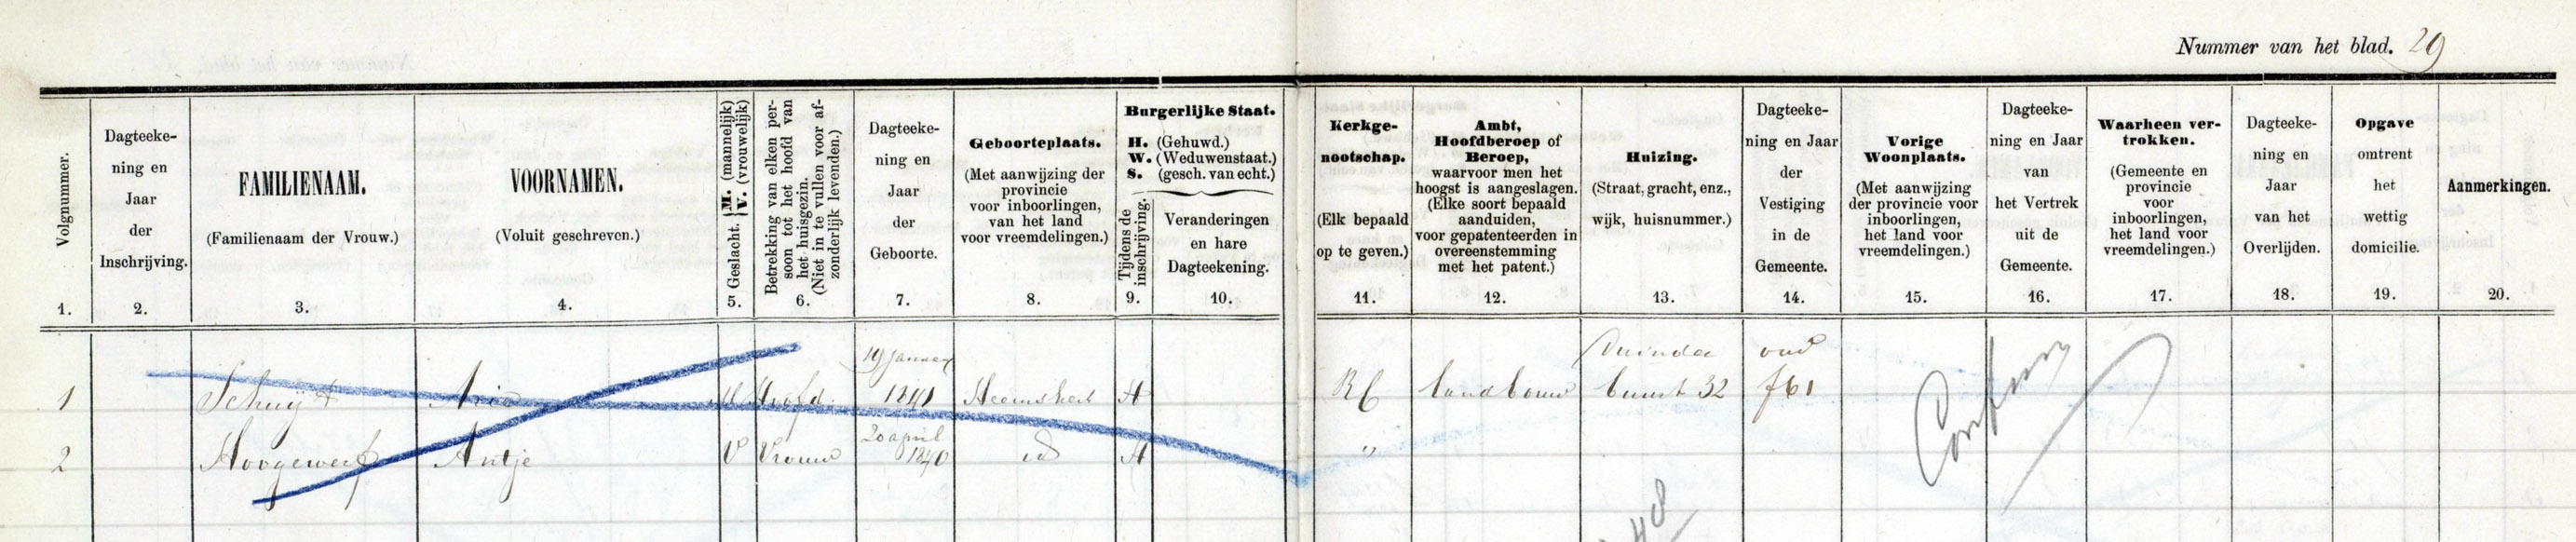 Nummer van het blad. 29
Volgnummer.
1.
Dagteeke-
ning en
Jaar
der
Inschrijving.
2.
FAMILIENAAM.
(Familienaam der Vrouw.)
3.
VOORNAMEN.
(Voluit geschreven.)
4.
Geslacht. M. (mannelijk)
V. (vrouwelijk)
5.
Betrekking van elken per-
soon tot het hoofd van
het huisgezin.
(Niet in te vullen voor af-
zonderlijk levenden.)
6.
Dagteeke-
ning en
Jaar
der
Geboorte.
7.
Geboorteplaats.
(Met aanwijzing der
provincie
voor inboorlingen,
van het land
voor vreemdelingen.)
8.
Burgerlijke Staat.
H. (Gehuwd.)
W. (Weduwenstaat.)
S. (gesch. van echt.)
Tijdens de
inschrijving.
9.
Veranderingen
en hare
Dagteekening.
10.
Kerkge-
nootschap.
(Elk bepaald
op te geven.)
11.
Ambt,
Hoofdberoep of
Beroep,
waarvoor men het
hoogst is aangeslagen.
(Elke soort bepaald
aanduiden,
voor gepatenteerden in
overeenstemming
met het patent.)
12.
Huizing.
(Straat, gracht, enz.,
wijk, huisnummer.)
13.
Dagteeke-
ning en Jaar
der
Vestiging
in de
Gemeente.
14.
Vorige
Woonplaats.
(Met aanwijzing
der provincie voor
inboorlingen,
het land voor
vreemdelingen.)
15.
Dagteeke-
ning en Jaar
van
het Vertrek
uit de
Gemeente.
16.
Waarheen ver-
trokken.
(Gemeente en
provincie
voor
inboorlingen,
het land voor
vreemdelingen.)
17.
Dagteeke-
ning en
Jaar
van het
Overlijden.
18.
Opgave
omtrent
het
wettig
domicilie.
19.
Aanmerkingen.
20.
19 januari Duinder oud
1 Schuijt Arie M Hoofd 1841 Heemskerk H RC landbouw buurt 32 f61
20 april
2 Hoogewerf Antje V Vrouw 1840 id H "
48